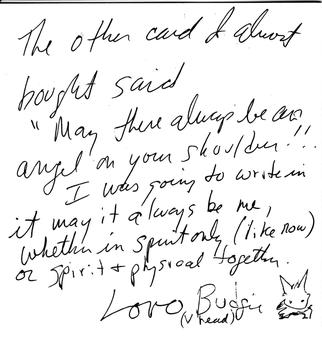 The other card I almost
bought said
"May there always be an
angel on your shoulder!!!
I was going to write in
it may it always be me,
whether in spirit only (like now)
or spirit + physical together.
Love, Budgie
(V head)